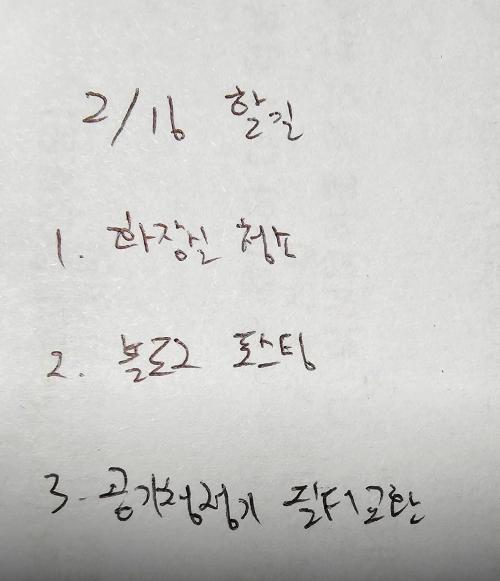 2/16 할일
1. 화장실 청소
2. 블로그 포스팅
3. 공기청정기 필터교환